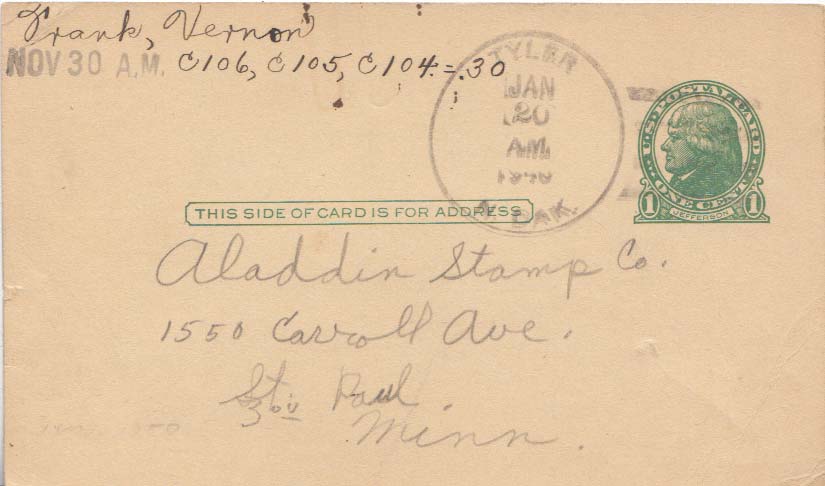 Frank, Vernon
NOV 30 A.M. C106, C105, C104. = .30
TYLER
JAN
20
A.M.
1940
N. DAK.
U.S. POSTAL CARD
ONE CENT
1 JEFFERSON 1
THIS SIDE OF CARD IS FOR ADDRESS
Aladdin Stamp Co.
1550 Carroll Ave.
St. Paul
Minn.